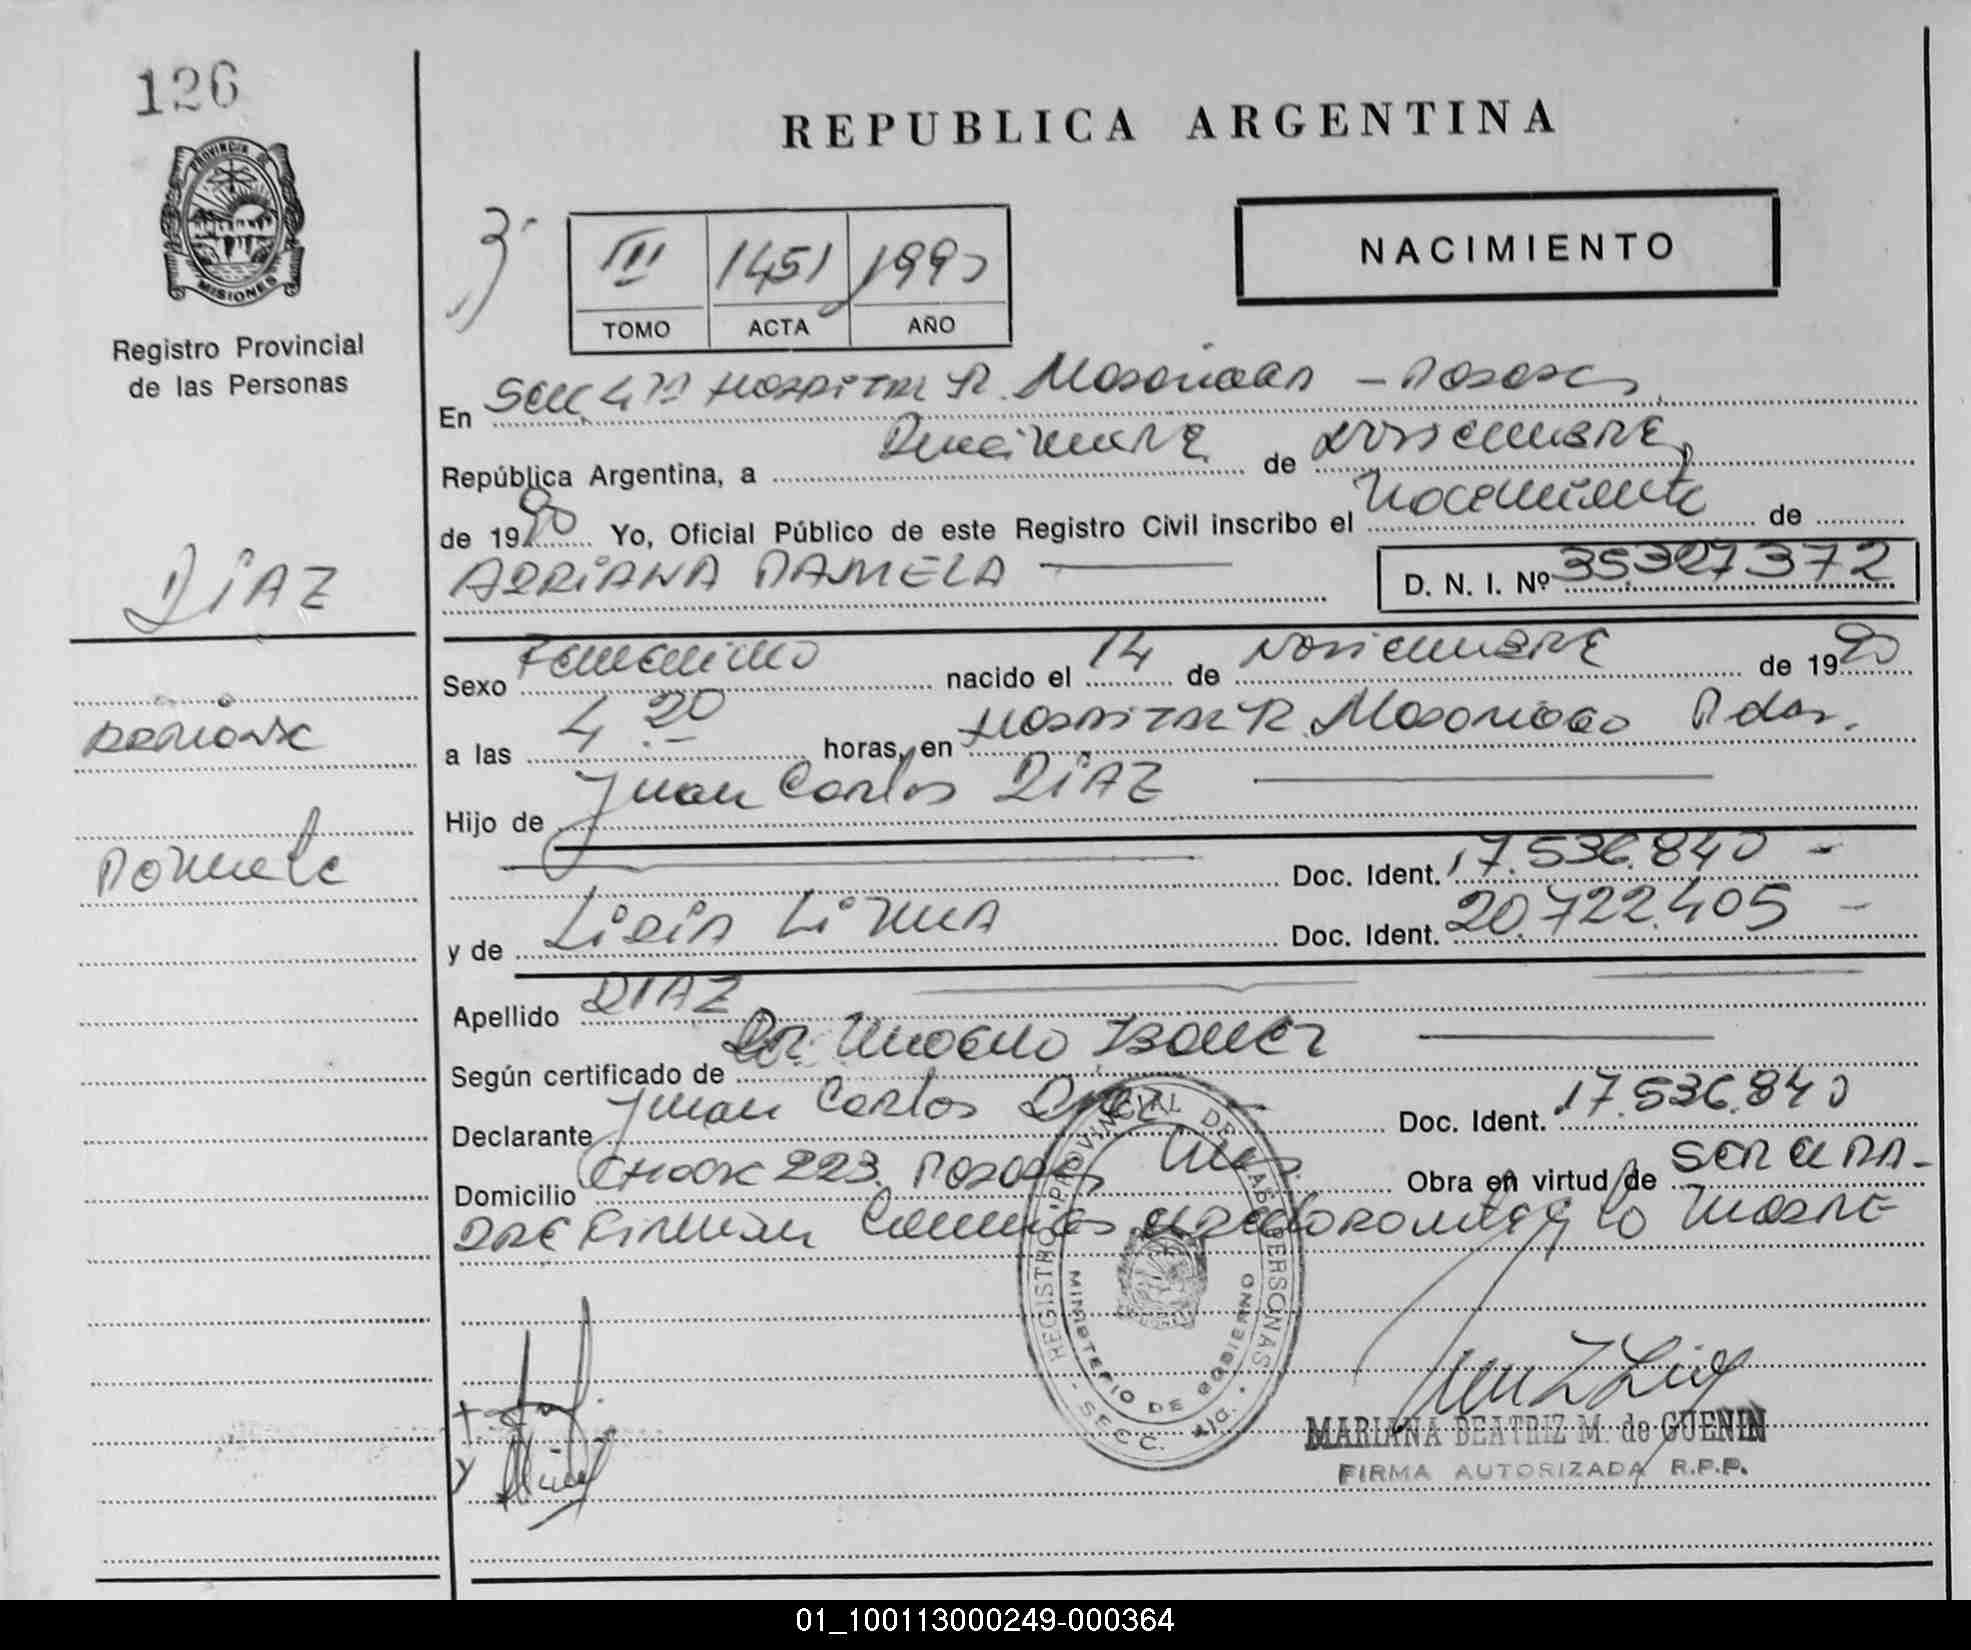 126
REPUBLICA ARGENTINA
PROVINCIA DE
MISIONES
Registro Provincial
de las Personas
III 1451 1990
TOMO ACTA AÑO
NACIMIENTO
En Secc 4ta Hospital R. Madariaga - Posadas
República Argentina, a de Noviembre
de 1990 Yo, Oficial Público de este Registro Civil inscribo el Nacimiento de
DIAZ
ADRIANA PAMELA
D. N. I. Nº 35.327372
Sexo Femenino nacido el 14 de Noviembre de 1990
Adriana
a las 4.20 horas, en Hospital R. Madariaga Pdas.
Hijo de Juan Carlos DIAZ
Pamela
Doc. Ident. 17.536.840 -
y de Lidia Lima Doc. Ident. 20.722.405 -
Apellido DIAZ
Según certificado de Dr.
Declarante Juan Carlos Diaz Doc. Ident. 17.536.840
Domicilio 223. Posadas Mnes Obra en virtud de ser el pa-
dre Firman la madre
REGISTRO PROVINCIAL DE LAS PERSONAS
MINISTERIO DE GOBIERNO
SECC. 4ta.
MARIANA BEATRIZ M. de GUENIN
FIRMA AUTORIZADA R.P.P.
01_100113000249-000364